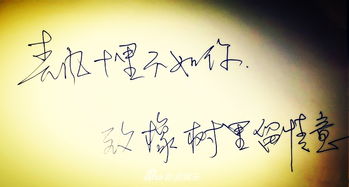 春风十里不如你.
致橡树里留情意